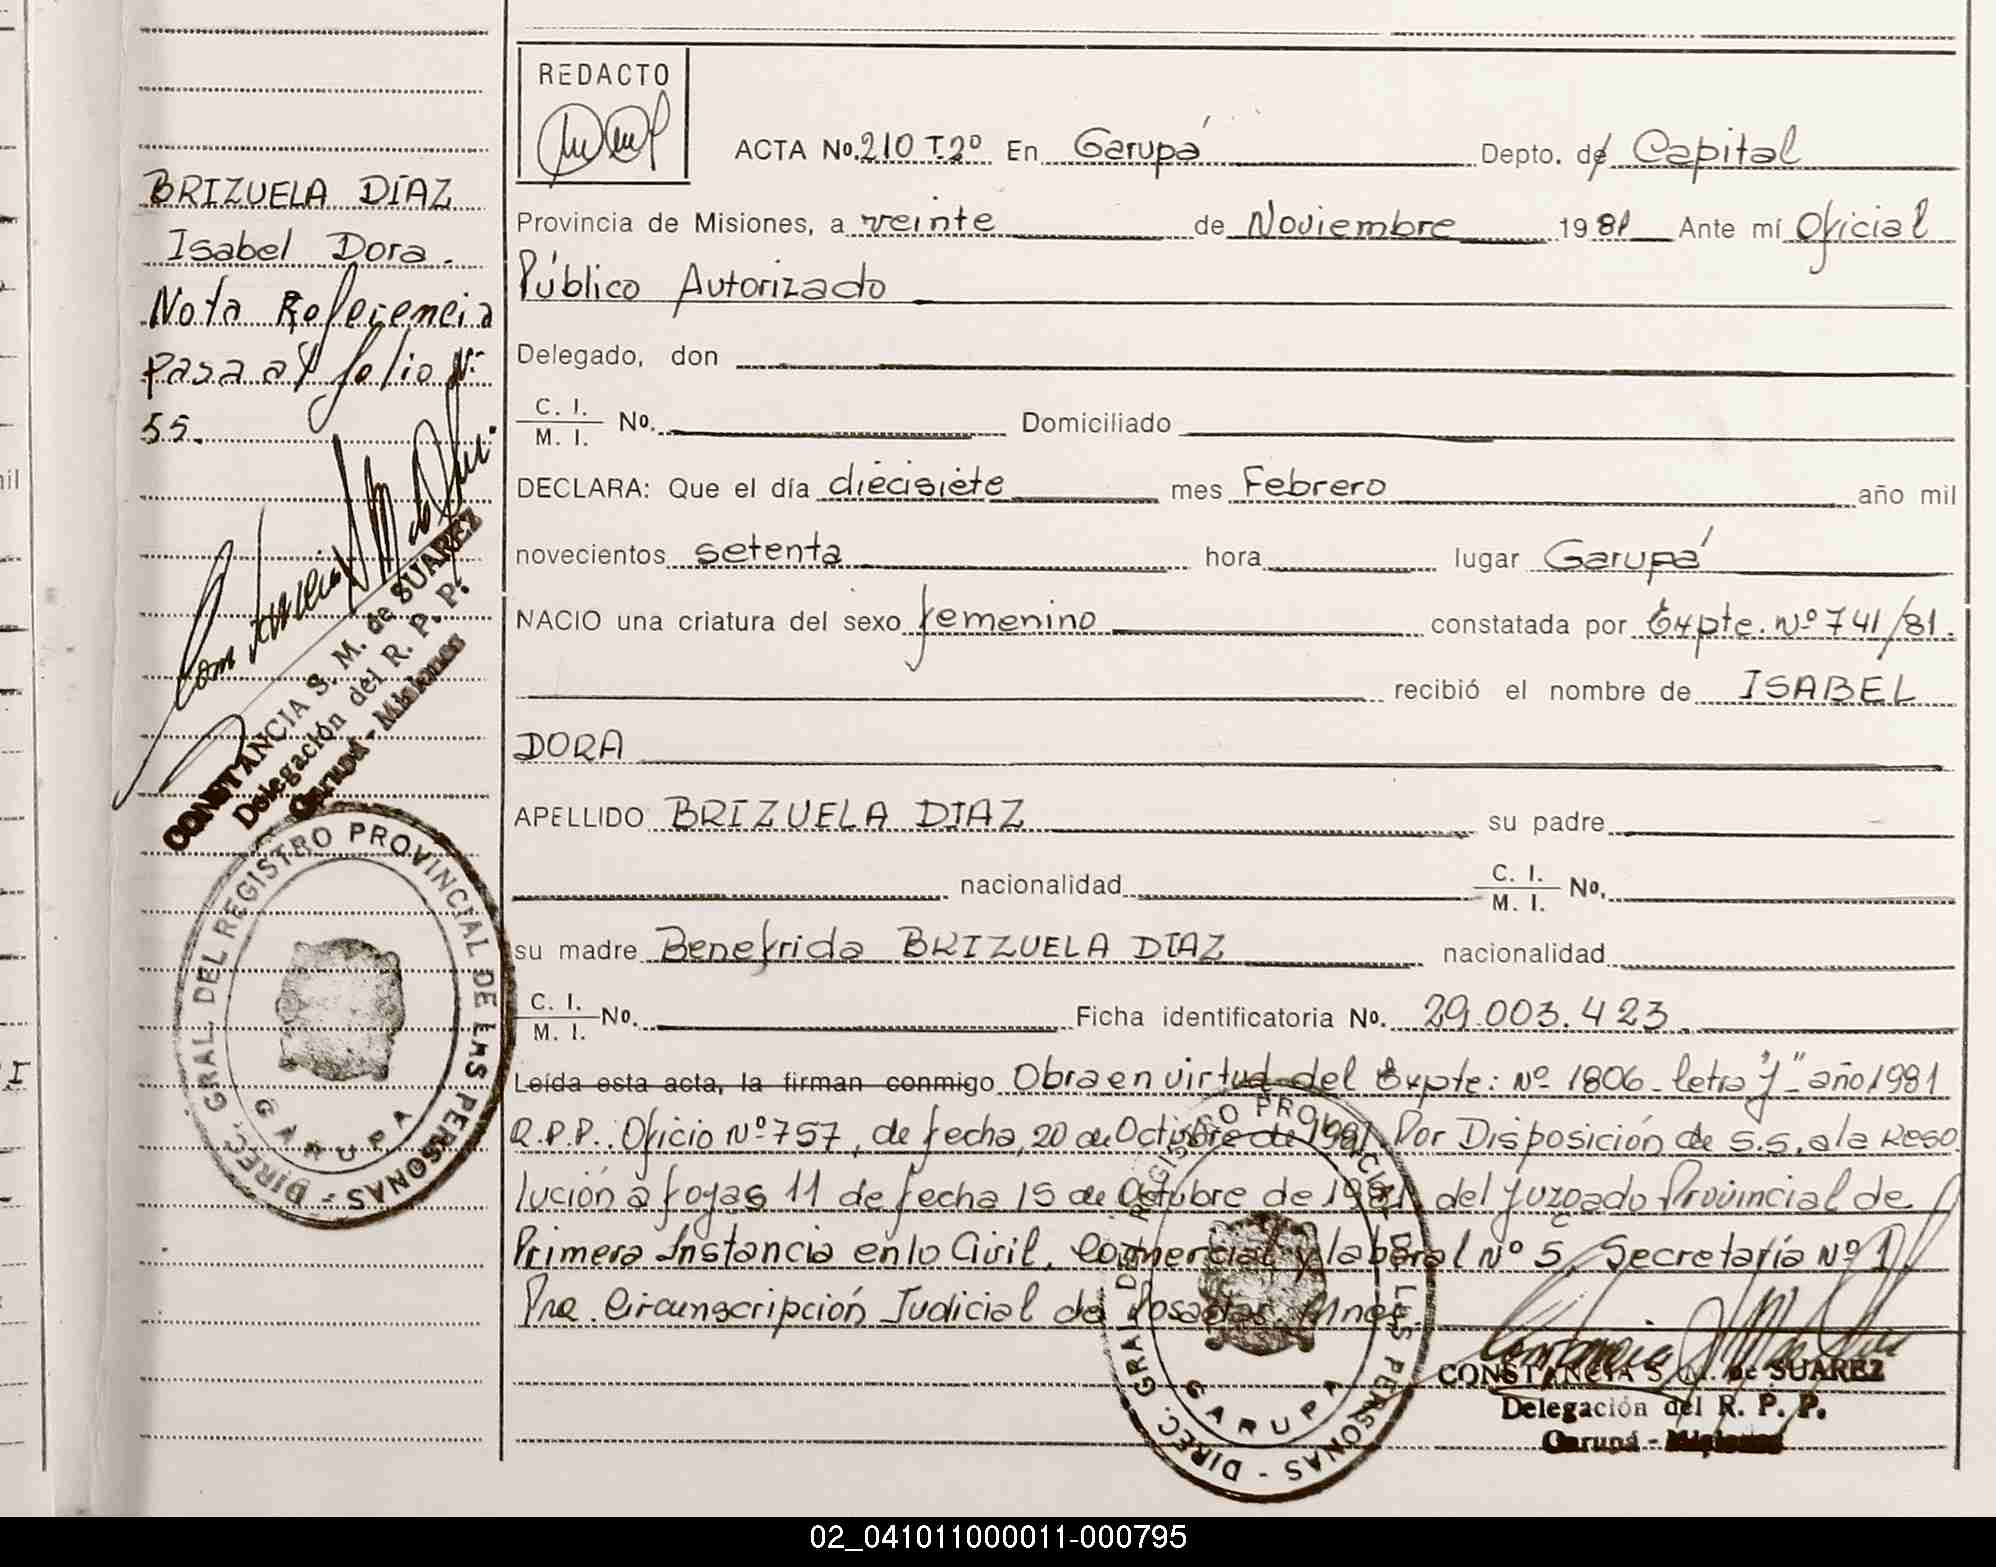 BRIZUELA DÍAZ
Isabel Dora.
Nota Referencia
pasa al folio Nº
55.
CONSTANCIA S. M. de SUAREZ
Delegación del R. P. P.
Garupá - Misiones
DIREC. GRAL. DEL REGISTRO PROVINCIAL DE LAS PERSONAS -
GARUPA
REDACTO
ACTA No. 210 T.2º En Garupá Depto. de Capital
Provincia de Misiones, a veinte de Noviembre 1981 Ante mí Oficial
Público Autorizado
Delegado, don
C. I.
M. I. No. Domiciliado
DECLARA: Que el día diecisiete mes Febrero año mil
novecientos setenta hora lugar Garupá
NACIO una criatura del sexo femenino constatada por Expte. Nº 741/81.
recibió el nombre de ISABEL
DORA
APELLIDO BRIZUELA DIAZ su padre
nacionalidad C. I.
M. I. No.
su madre Benefrida BRIZUELA DIAZ nacionalidad
C. I.
M. I. No. Ficha identificatoria No. 29.003.423
Leída esta acta, la firman conmigo Obra en virtud del Expte: Nº 1806-letra "J"- año 1981
R.P.P. Oficio Nº 757, de fecha, 20 de Octubre de 1981, Por Disposición de S.S. a la Reso
lución a fojas 11 de fecha 15 de Octubre de 1981 del Juzgado Provincial de
Primera Instancia en lo Civil, Comercial y laboral Nº 5, Secretaría Nº 1
Pra. Circunscripción Judicial de Posadas Mnes.
CONSTANCIA S. M. de SUAREZ
Delegación del R. P. P.
Garupá - Misiones
DIREC. GRAL. DEL REGISTRO PROVINCIAL DE LAS PERSONAS -
GARUPA
02_041011000011-000795